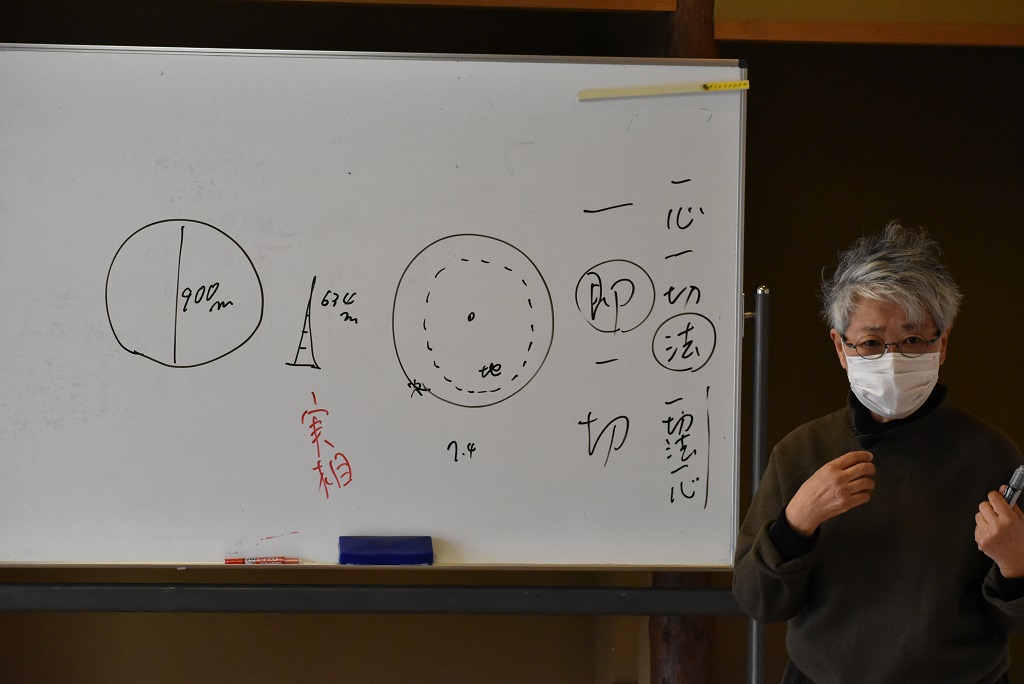 一心一切法
一切法一心
一即一切
地
7.4
634
m
実相
900
m